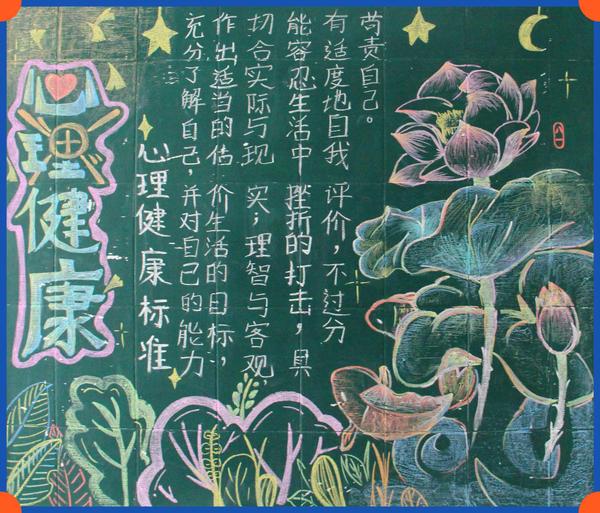 心理健康
心理健康标准
充分了解自己，并对自己的能力
作出适当的估价生活的目标，
切合实际与现实；理智与客观，
能容忍生活中挫折的打击，具
有适度地自我评价，不过分
苛责自己。